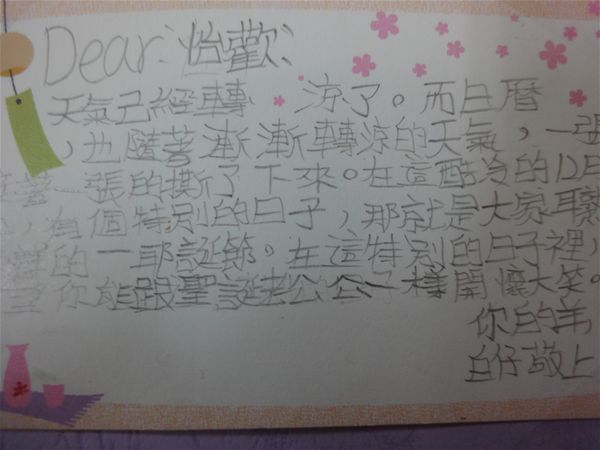 Dear:怡歡:
天氣已經轉 涼了。而日曆
,也隨著漸漸轉涼的天氣,一張
著一張的撕了下來。在這酷冷的12月
,有個特別的日子,那就是大家耳熟
的一耶誕節。在這特别的日子裡,
你能跟聖誕老公公一樣開懷大笑。
你的羊
白仔敬上